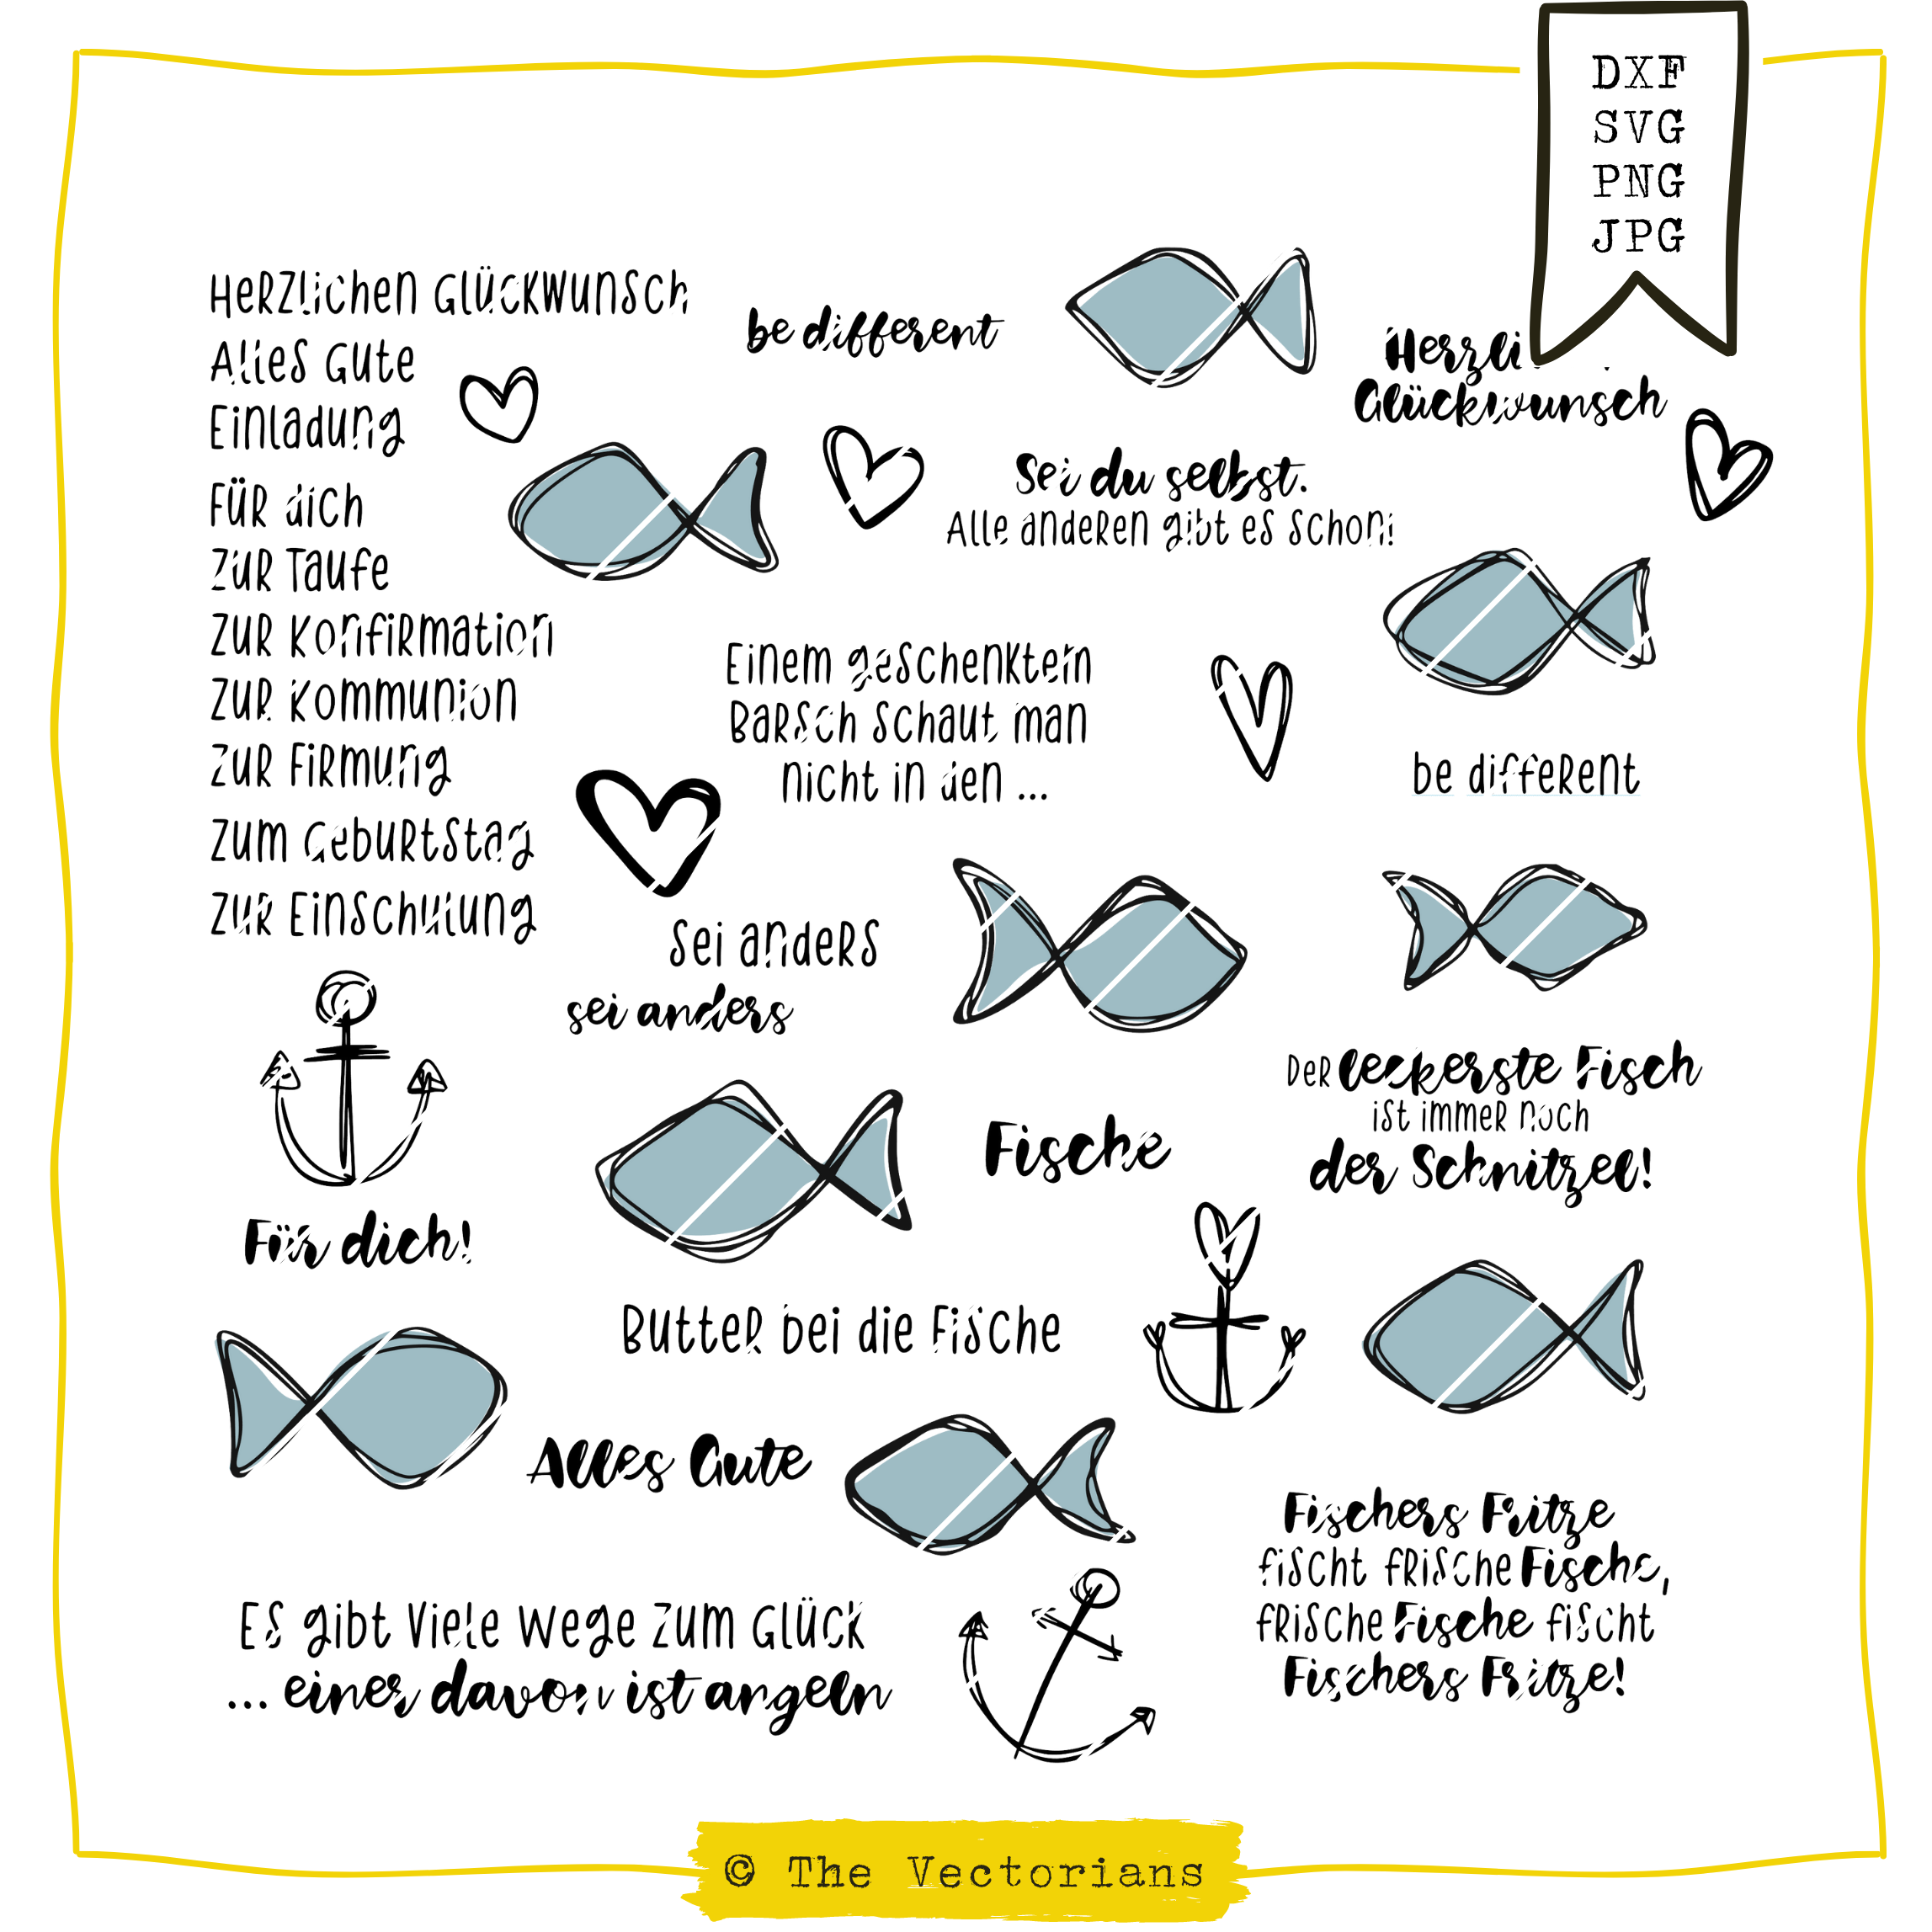 DXF
SVG
PNG
JPG
Herzlichen Glückwunsch
Alles Gute
Einladung
Für dich
Zur Taufe
Zur Konfirmation
Zur Kommunion
Zur Firmung
Zum Geburtstag
Zur Einschulung
be different
Herzli
Glückwunsch
Sei du selbst.
Alle anderen gibt es schon!
Einem geschenkten
Barsch schaut man
nicht in den ...
be different
Sei anders
sei anders
Der leckerste Fisch
ist immer noch
der Schnitzel!
Fische
Für dich!
Butter bei die Fische
Alles Gute
Fischers Fritze
fischt frische Fische,
frische Fische fischt
Fischers Fritze!
Es gibt viele Wege zum Glück
... einer davon ist angeln
© The Vectorians